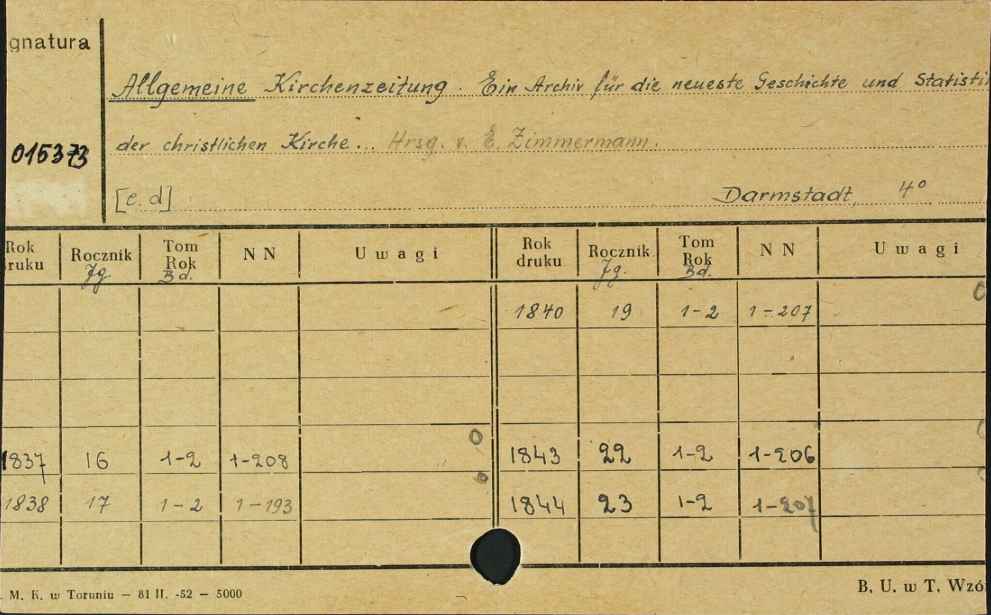 gnatura
Allgemeine Kirchenzeitung. Ein Archiv für die neueste Geschichte und Statisti
015373
der christlichen Kirche... Hrsg. v. E. Zimmermann.
[c. d] Darmstadt 4º
Rok druku Rocznik Jg. Tom Rok Bd. NN Uwagi Rok druku Rocznik Jg. Tom Rok Bd. NN Uwagi
1840 19 1-2 1-207
1837 16 1-2 1-208 1843 22 1-2 1-206
1838 17 1-2 1-193 1844 23 1-2 1-207
. M. K. w Toruniu — 81 II. -52 — 5000 B. U. w T. Wzó